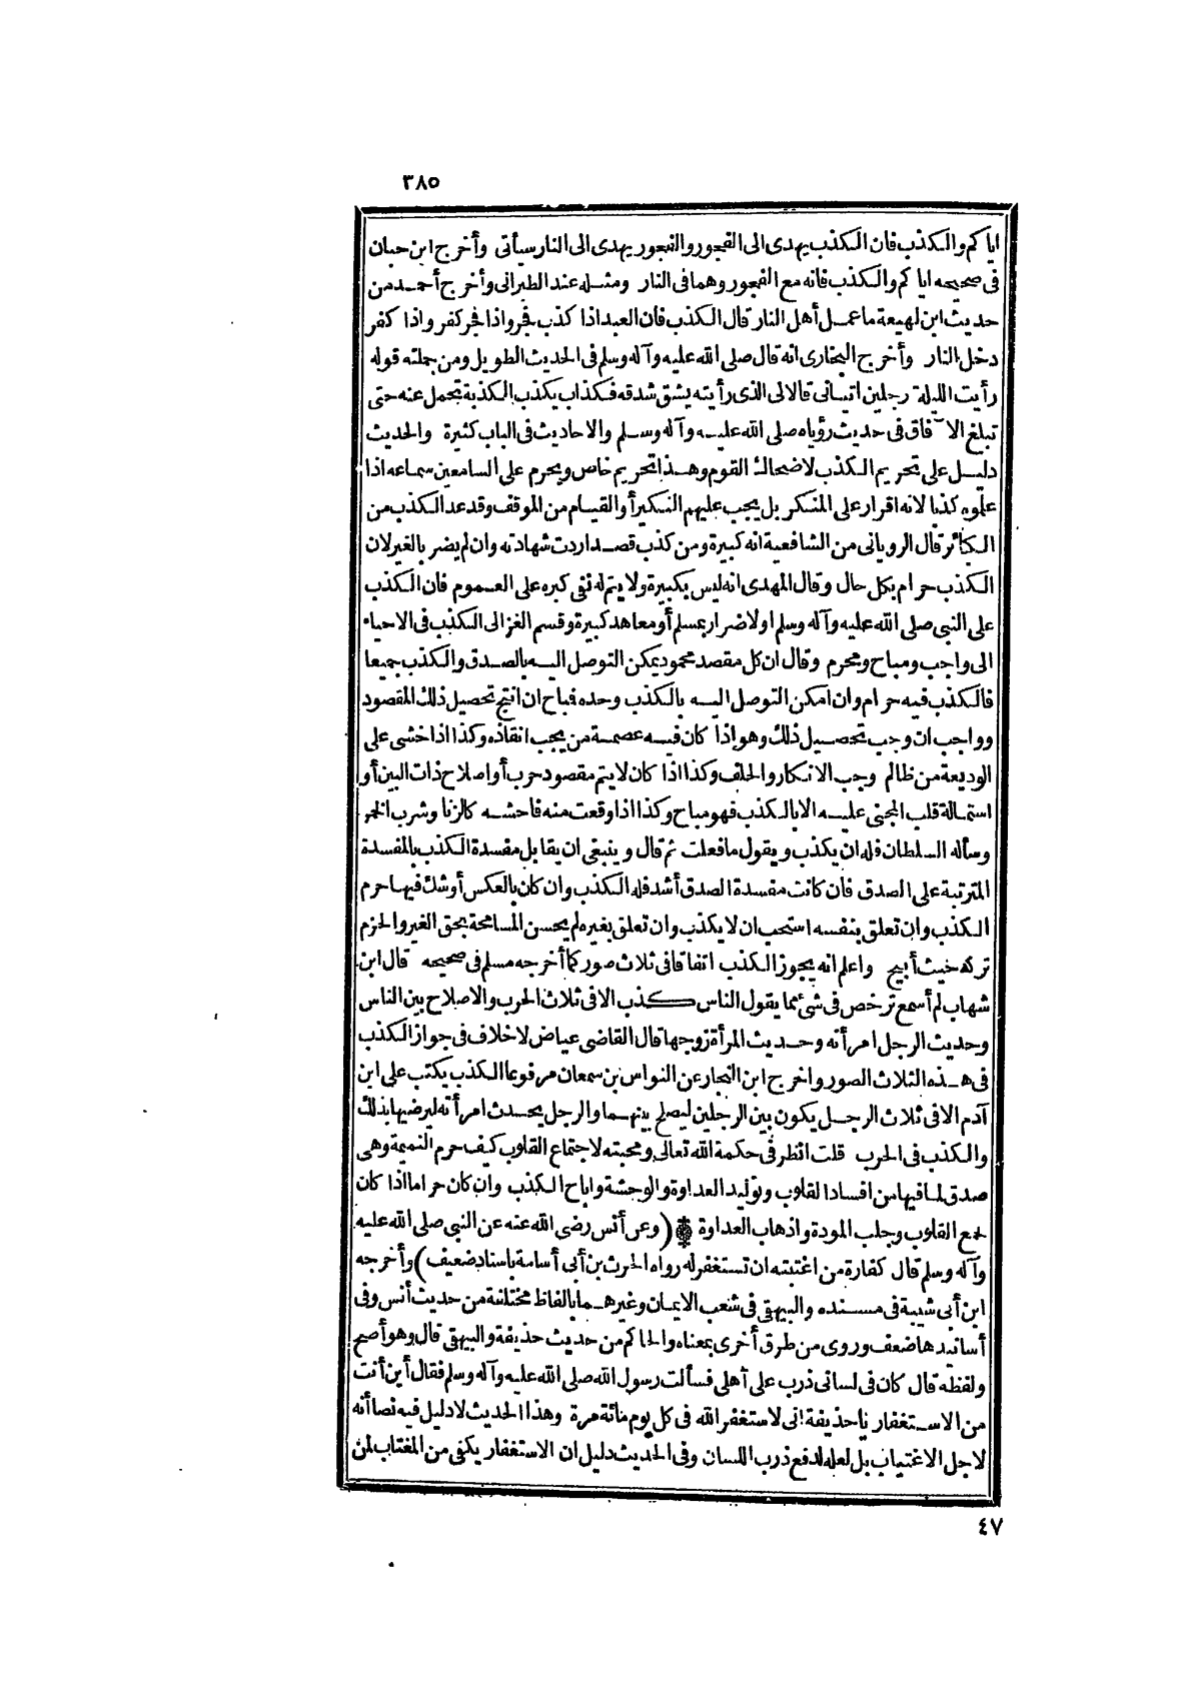 ٣٨٥
اياكم والكذب فان الكذب يهدى الى الفجور والفجور يهدى الى النار سيأتى وأخرج ابن حبان
فى صحيحه اياكم والكذب فانه مع الفجور وهما فى النار ومثله عند الطبرانى وأخرج أحمد من
حديث ابن لهيعة ما عمل أهل النار قال الكذب فان العبد اذا كذب فجر واذا فجر كفر واذا كفر
دخل النار وأخرج البخارى انه قال صلى الله عليه وآله وسلم فى الحديث الطويل ومن جملته قوله
رأيت الليلة رجلين اتيانى قالا لى الذى رأيته يشق شدقه فكذاب يكذب الكذبة تحمل عنه حتى
تبلغ الآفاق فى حديث رؤياه صلى الله عليه وآله وسلم والاحاديث فى الباب كثيرة والحديث
دليل على تحريم الكذب لاضحاك القوم وهذا تحريم خاص ويحرم على السامعين سماعه اذا
علموه كذبا لانه اقرار على المنكر بل يجب عليهم النكير أو القيام من الموقف وقد عد الكذب من
الكبائر قال الرويانى من الشافعية انه كبيرة ومن كذب قصدا ردت شهادته وان لم يضر بالغير لان
الكذب حرام بكل حال وقال المهدى انه ليس بكبيرة ولا يتم له نفى كبره على العموم فان الكذب
على النبى صلى الله عليه وآله وسلم او لاضرار بمسلم أو معاهد كبيرة وقسم الغزالى الكذب فى الاحياء
الى واجب ومباح ومحرم وقال ان كل مقصد محمود يمكن التوصل اليه بالصدق والكذب جميعا
فالكذب فيه حرام وان امكن التوصل اليه بالكذب وحده فباح ان انتج تحصيل ذلك المقصود
وواجب ان وجب تحصيل ذلك وهو اذا كان فيه عصمة من يجب انقاذه وكذا اذا خشى على
الوديعة من ظالم وجب الانكار والحلف وكذا اذا كان لا يتم مقصود حرب أو اصلاح ذات البين أو
استمالة قلب المجنى عليه الا بالكذب فهو مباح وكذا اذا وقعت منه فاحشه كالزنا وشرب الخمر
وسأله السلطان فله ان يكذب ويقول ما فعلت ثم قال وينبغى ان يقابل مفسدة الكذب بالمفسدة
المترتبة على الصدق فان كانت مفسدة الصدق أشد فله الكذب وان كان بالعكس أو شك فيها حرم
الكذب وان تعلق بنفسه استحب ان لا يكذب وان تعلق بغيره لم يحسن المسامحة بحق الغير والحزم
تركه حيث أبيح واعلم انه يجوز الكذب اتفاقا فى ثلاث صور كما أخرجه مسلم فى صحيحه قال ابن
شهاب لم أسمع ترخص فى شئ مما يقول الناس كذب الا فى ثلاث الحرب والاصلاح بين الناس
وحديث الرجل امرأته وحديث المرأة زوجها قال القاضى عياض لا خلاف فى جواز الكذب
فى هذه الثلاث الصور واخرج ابن النجار عن النواس بن سمعان مرفوعا الكذب يكتب على ابن
آدم الا فى ثلاث الرجل يكون بين الرجلين ليصلح بينهما والرجل يحدث امرأته ليرضيها بذلك
والكذب فى الحرب قلت انظر فى حكمة الله تعالى ومحبته لاجتماع القلوب كيف حرم النميمة وهى
صدق لما فيها من افساد القلوب وتوليد العداوة والوحشة واباح الكذب وان كان حراما اذا كان
لجمع القلوب وجلب المودة واذهاب العداوة ۞ (وعن أنس رضى الله عنه عن النبى صلى الله عليه
وآله وسلم قال كفارة من اغتبته ان تستغفر له رواه الحرث بن أبى أسامة باسناد ضعيف) وأخرجه
ابن أبى شيبة فى مسنده والبيهقى فى شعب الايمان وغيرهما بالفاظ مختلفة من حديث أنس وفى
أسانيدها ضعف وروى من طرق أخرى بمعناه والحاكم من حديث حذيفة والبيهقى قال وهو أصح
ولفظه قال كان فى لسانى ذرب على أهلى فسألت رسول الله صلى الله عليه وآله وسلم فقال أين أنت
من الاستغفار يا حذيفة انى لاستغفر الله فى كل يوم مائة مرة وهذا الحديث لا دليل فيه نصا أنه
لاجل الاغتياب بل لعله لدفع ذرب اللسان وفى الحديث دليل ان الاستغفار يكفى من المغتاب لمن
٤٧